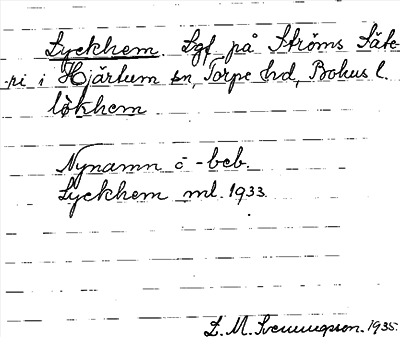 Lyckhem. Lgf på Ströms Säte-
ri i Hjärtum sn, Torpe hd, Bohus l.
lỳkhem
Nynamn o -beb.
Lyckhem ml. 1933.
L. M. Svenungsson. 1935.